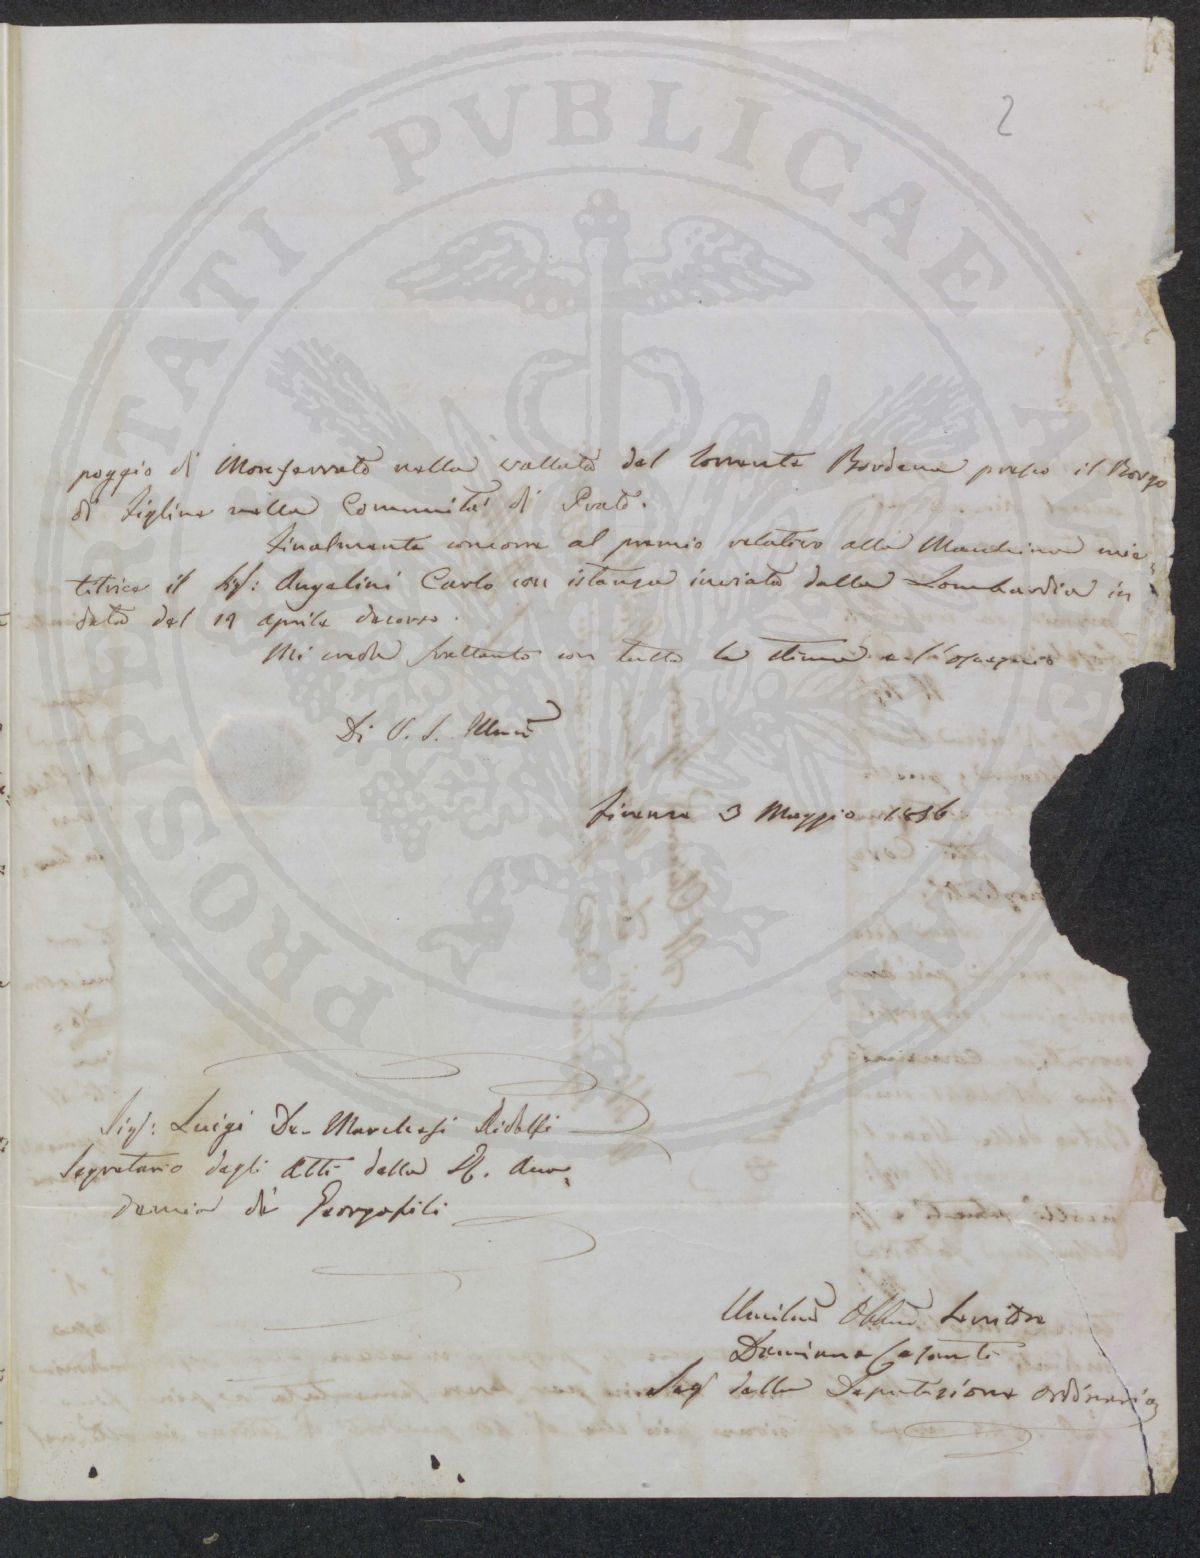 2
PROSPERITATI PUBLICAE AUGENDAE
poggio di Monferrato nella vallata del torrente Bardena presso il Borgo
di Figline nella Comunità di Prato.
Finalmente concorre al premio relativo alla Macchina mie=
titrice il Sigr: Angelini Carlo con istanza inviata dalla Lombardia in
data del 19 aprile decorso.
Mi creda frattanto con tutta la stima e l'ossequio
Di V. S. Illma
Firenze 3 Maggio 1856
Sigr: Luigi De Marchesi Ridolfi
Segretario degli Atti della R. Acca=
demia de' Georgofili
Umilmo Obbmo Servitore
Damiano Casanti
Segr della Deputazione ordinaria